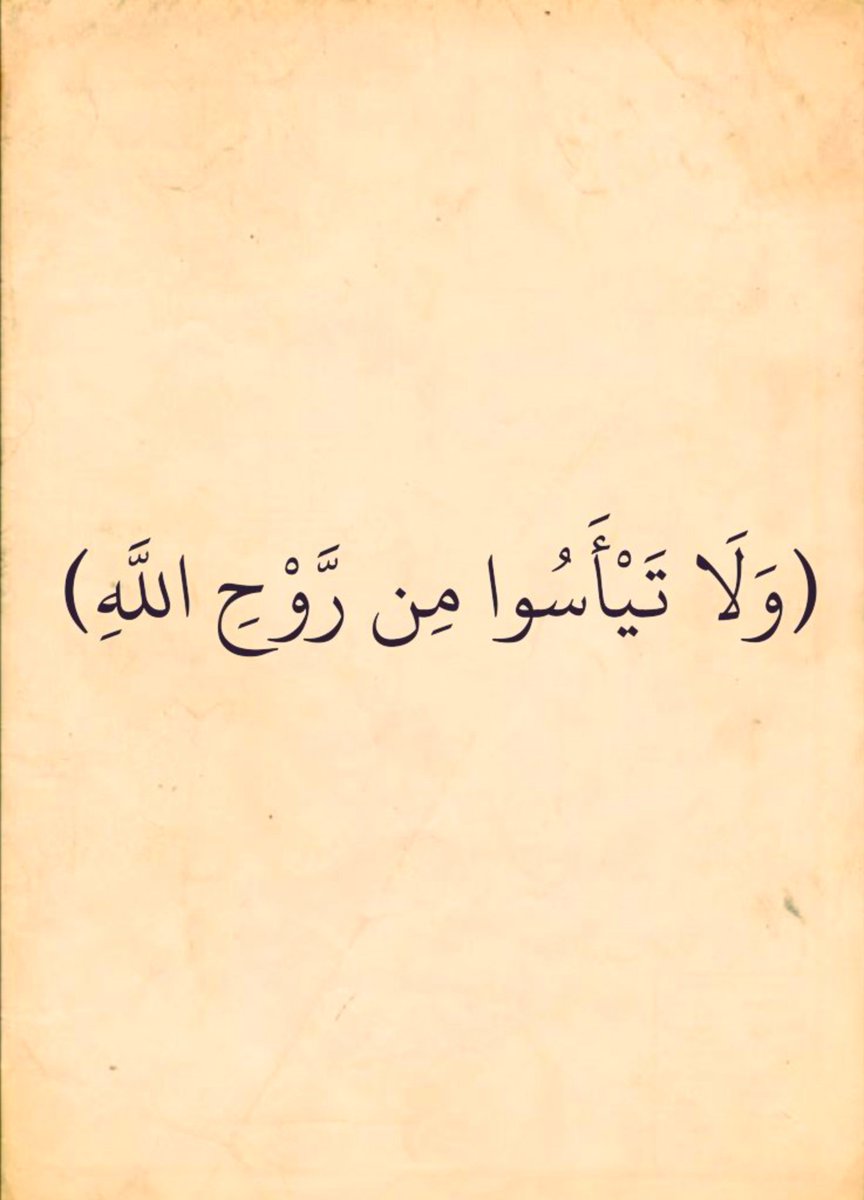 (وَلَا تَيْأَسُوا مِن رَّوْحِ اللَّهِ)